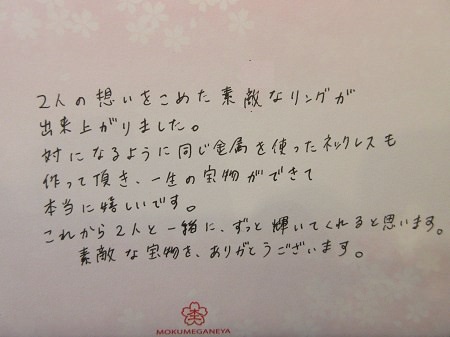 2人の想いをこめた素敵なリングが
出来上がりました。
対になるように同じ金属を使ったネックレスも
作って頂き、一生の宝物ができて
本当に嬉しいです。
これから2人と一緒に、ずっと輝いてくれると思います。
素敵な宝物を、ありがとうございます。
MOKUMEGANEYA